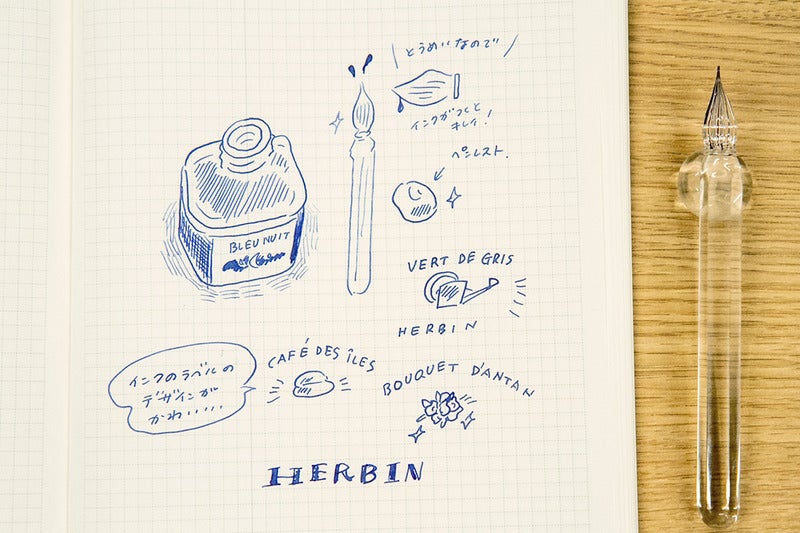 とうめいなので
インクがつくと
キレイ!
ペンレスト.
BLEU NUIT
VERT DE GRIS
HERBIN
CAFÉ DES ÎLES
インクのラベルの
デザインが
かわいい…
BOUQUET D'ANTAN
HERBIN